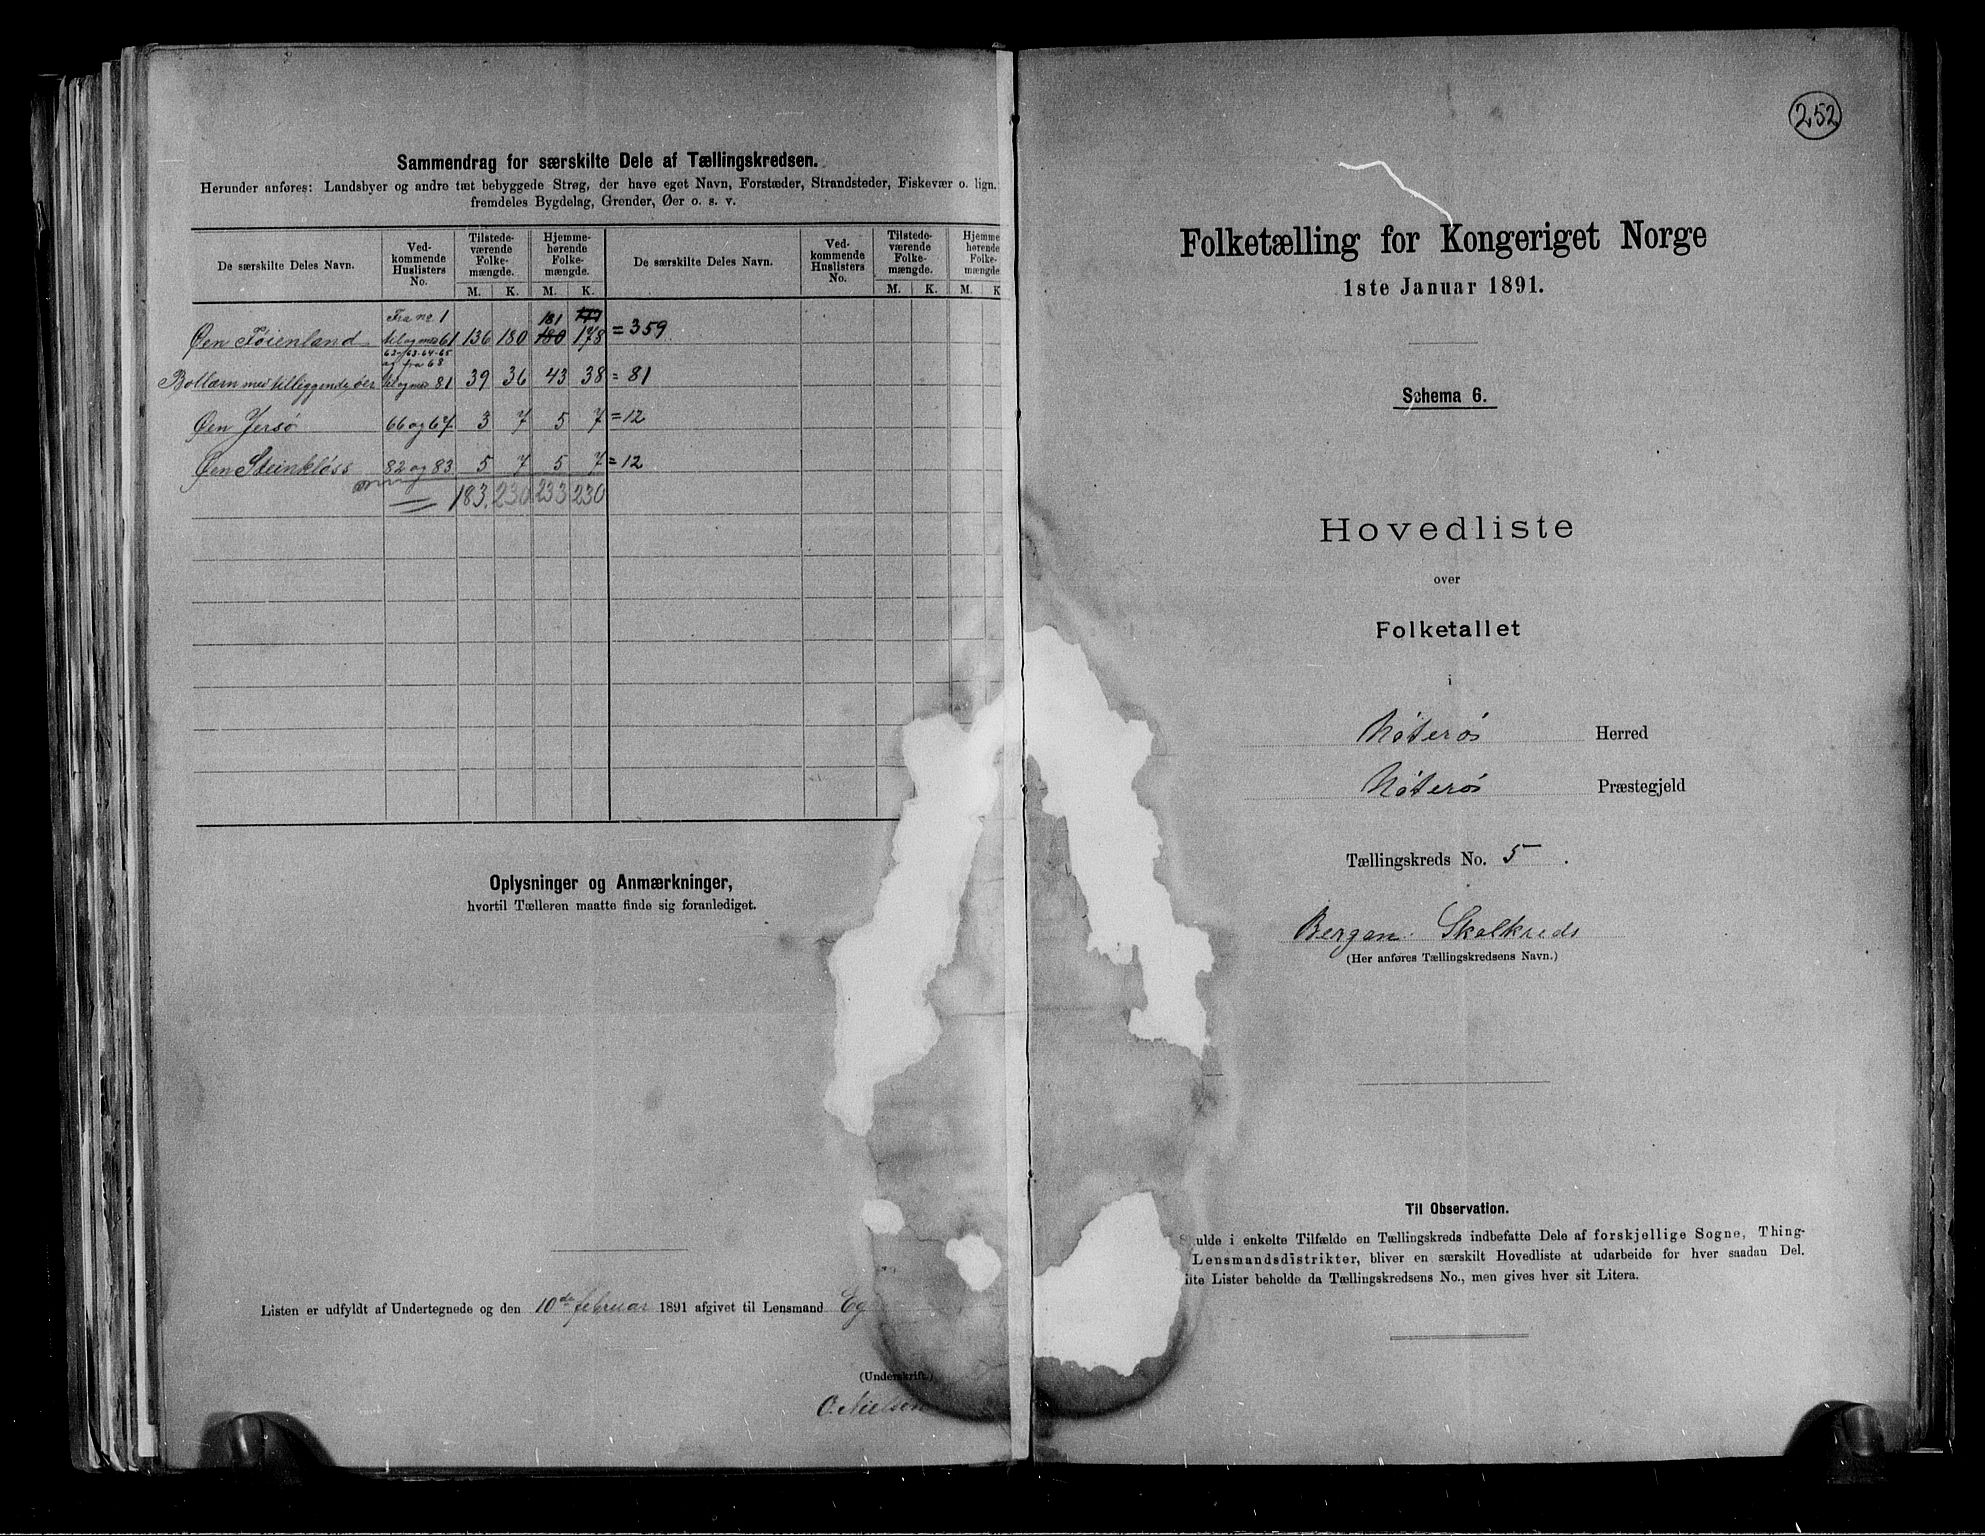 Sammendrag for særskilte Dele af Tællingskredsen.
Herunder anføres: Landsbyer og andre tæt bebyggede Strøg, der have eget Navn, Forstæder, Strandsteder, Fiskevær o. lign.
fremdeles Bygdelag, Grender, Øer o. s. v.
De særskilte Deles Navn. Ved-kommende Huslisters No. Tilstede-værende Folke-mængde. Hjemme-hørende Folke-mængde. De særskilte Deles Navn. Ved-kommende Huslisters No. Tilstede-værende Folke-mængde. Hjemme hørende Folke- mængde
M. K. M. K. M. K. M. K
Fra no 1 181 177
Øen Föienland til og med 61 136 180 180 178 = 359
62-63-64-65
og fra 68
Bollærn med tilliggende øer til og med 81 39 36 43 38 = 81
Øen Jersö 66 og 67 3 7 5 7 = 12
Øen Steinklöss 82 og 83 5 7 5 7 = 12
183. 230 233 230
Oplysninger og Anmærkninger,
hvortil Tælleren maatte finde sig foranlediget.
Listen er udfyldt af Undertegnede og den 10de februar 1891 afgivet til Lensmand Eg
(Underskrift.)
O. Nielsen
252
Folketælling for Kongeriget Norge
1ste Januar 1891.
Schema 6.
Hovedliste
over
Folketallet
i
Nöterö Herred
Nöterö Præstegjeld
Tællingskreds No. 5.
Bergan Skolkreds
(Her anføres Tællingskredsens Navn.)
Til Observation.
kulde i enkelte Tilfælde en Tællingskreds indbefatte Dele af forskjellige Sogne, Thing-
Lensmandsdistrikter, bliver en særskilt Hovedliste at udarbeide for hver saadan Del.
lte Lister beholde da Tællingskredsens No., men gives hver sit Litera.